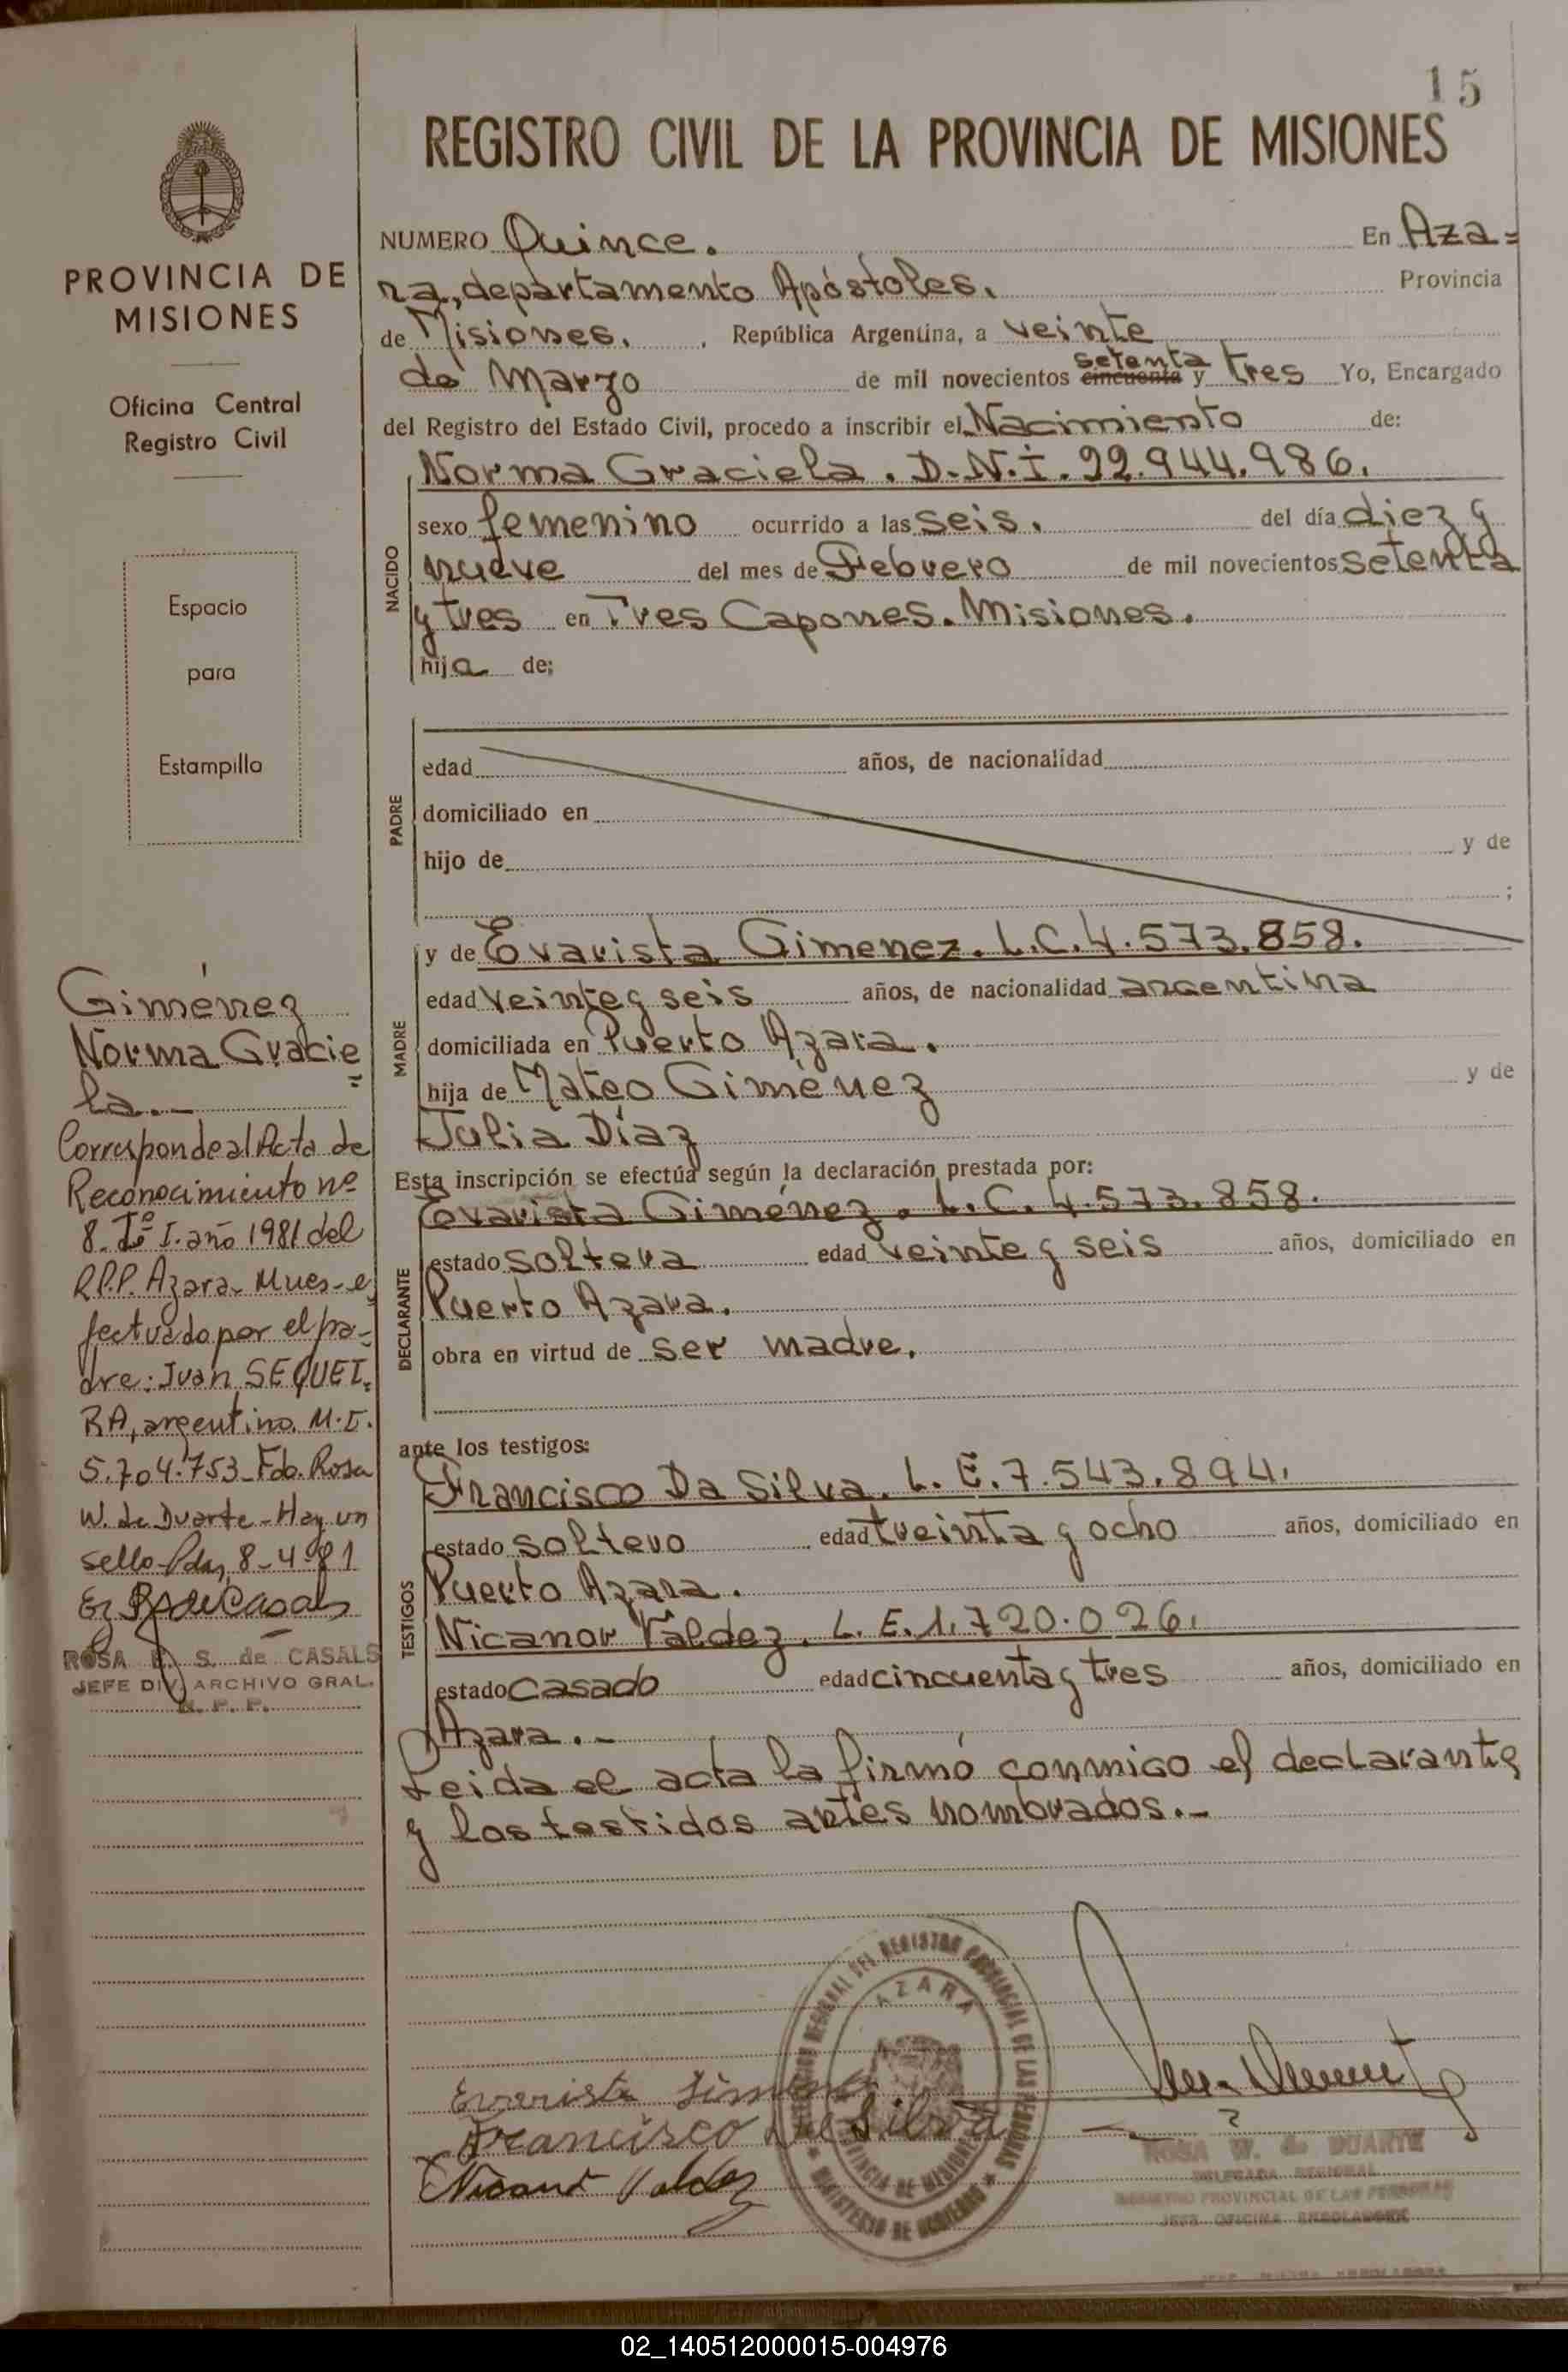 15
REGISTRO CIVIL DE LA PROVINCIA DE MISIONES
PROVINCIA DE
MISIONES
Oficina Central
Registro Civil
Espacio
para
Estampilla
NUMERO Quince. En Aza=
ra, departamento Apóstoles. Provincia
de Misiones. , República Argentina, a veinte
de Marzo de mil novecientos cincuenta setenta y tres Yo, Encargado
del Registro del Estado Civil, procedo a inscribir el Nacimiento de:
NACIDO
Norma Graciela. D.N.I. 22.944.986.
sexo femenino ocurrido a las seis. del día diez y
nueve del mes de Febrero de mil novecientos setenta
y tres en Tres Capones. Misiones.
hija de;
PADRE
edad años, de nacionalidad
domiciliado en
hijo de y de
;
MADRE
y de Evarista Gimenez. L.C. 4.573.858.
edad veinte y seis años, de nacionalidad argentina
domiciliada en Puerto Azara.
hija de Mateo Giménez y de
Julia Díaz
Esta inscripción se efectúa según la declaración prestada por:
DECLARANTE
Evarista Giménez. L.C. 4.573.858.
estado soltera edad veinte y seis años, domiciliado en
Puerto Azara.
obra en virtud de ser madre.
ante los testigos:
TESTIGOS
Francisco Da Silva. L.E. 7.543.894.
estado soltero edad treinta y ocho años, domiciliado en
Puerto Azara.
Nicanor Valdez. L.E. 1.720.026.
estado casado edad cincuenta y tres años, domiciliado en
Azara.-
Leida el acta la firmó conmigo el declarante
y los testidos antes nombrados.-
Giménez
Norma Gracie
=
la.-
Corresponde al Acta de
Reconocimiento nº
8- Tº I. año 1981 del
R.P.P. Azara- Mnes- e
fectuado por el pa-
dre: Juan SEQUEI-
RA, argentino. M.I.
5.704.753- Fdo. Rosa
W. de Duarte- Hay un
sello- Pdas, 8-4-81
ROSA E. S. de CASALS
JEFE DIV. ARCHIVO GRAL.
R. P. P.
Evarista Gimenez
Francisco Da Silva
Nicanor Valdez
DELEGACION REGIONAL DEL REGISTRO PROVINCIAL DE LAS PERSONAS
AZARA
PROVINCIA DE MISIONES
MINISTERIO DE GOBIERNO
ROSA W. de DUARTE
DELEGADA REGIONAL
REGISTRO PROVINCIAL DE LAS PERSONAS
JEFE OFICINA ENROLADORA
02_140512000015-004976